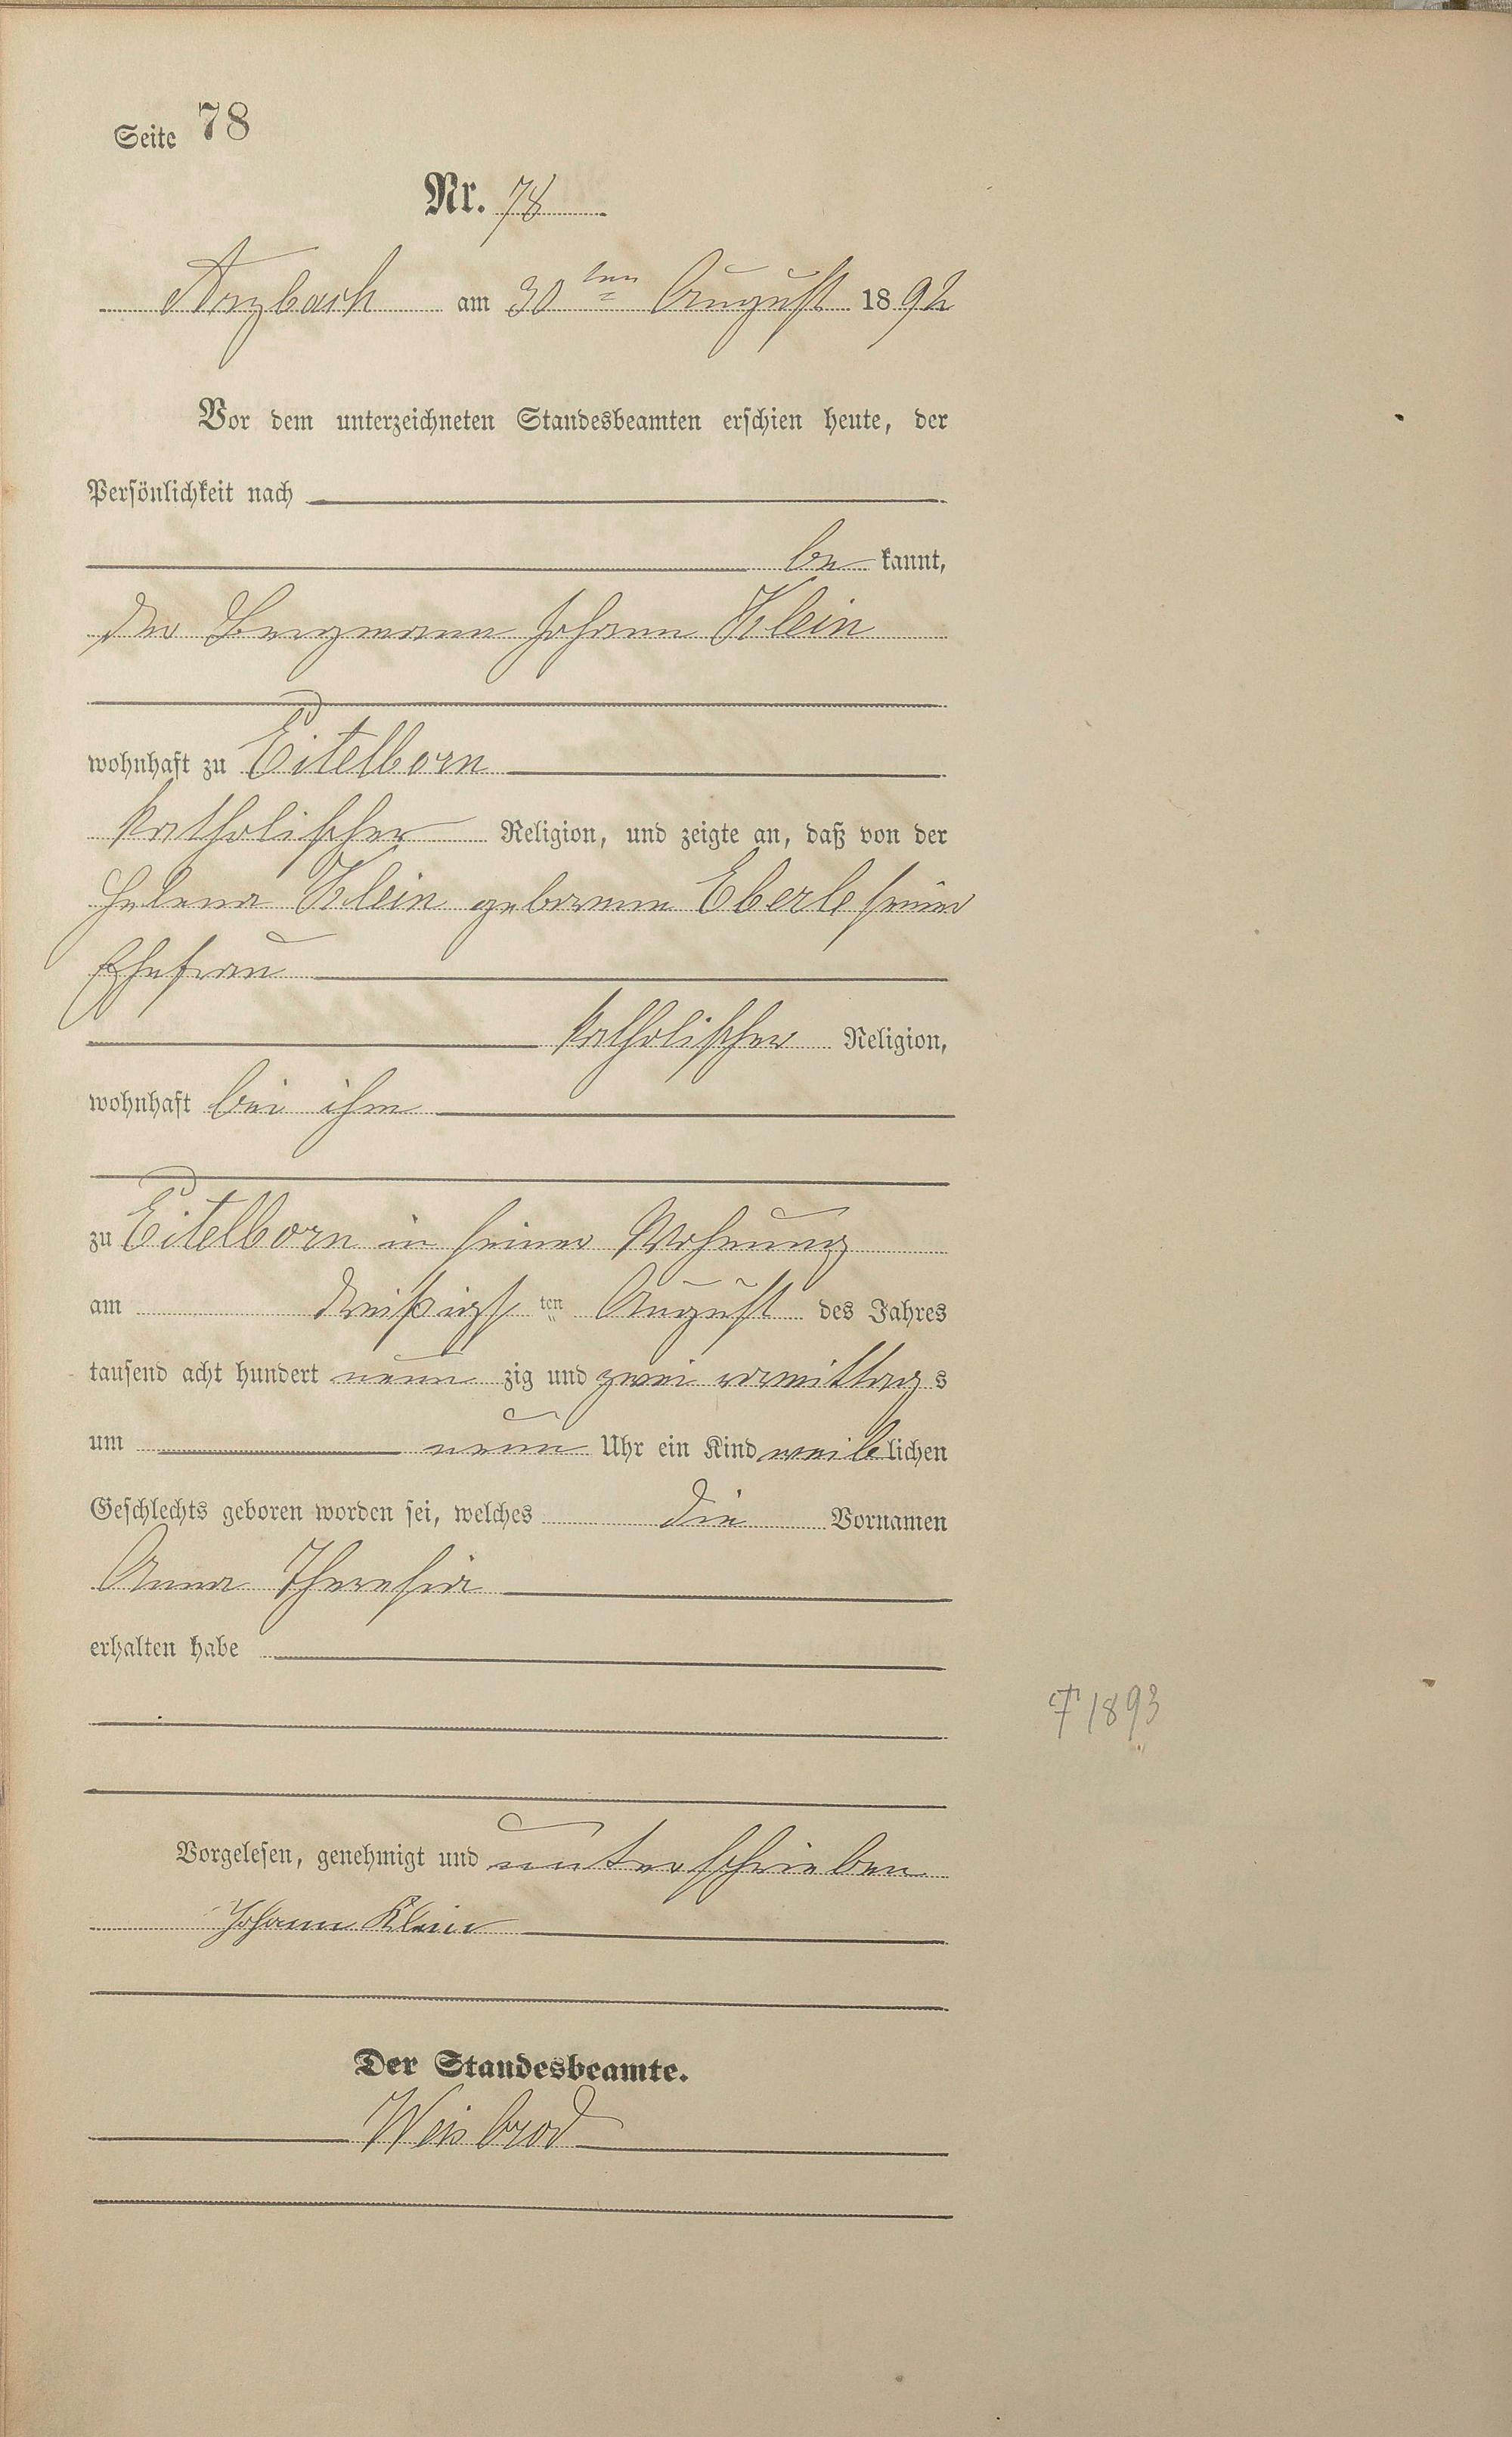 Seite 78
Nr. 78
Arzbach am 30ten August 1892
Vor dem unterzeichneten Standesbeamten erschien heute, der
Persönlichkeit nach
be kannt,
der Bergmann Johann Klein
wohnhaft zu Eitelborn
katholischer Religion, und zeigte an, daß von der
Helena Klein geborene Eberle seiner
Ehefrau
katholischer Religion,
wohnhaft bei ihm
zu Eitelborn in seiner Wohnung
am dreißigsten August des Jahres
tausend acht hundert neun zig und zwei vormittags
um neun Uhr ein Kind weiblichen
Geschlechts geboren worden sei, welches die Vornamen
Anna Theresia
erhalten habe
† 1893
Vorgelesen, genehmigt und unterschrieben
Johann Klein
Der Standesbeamte.
Weisbrod